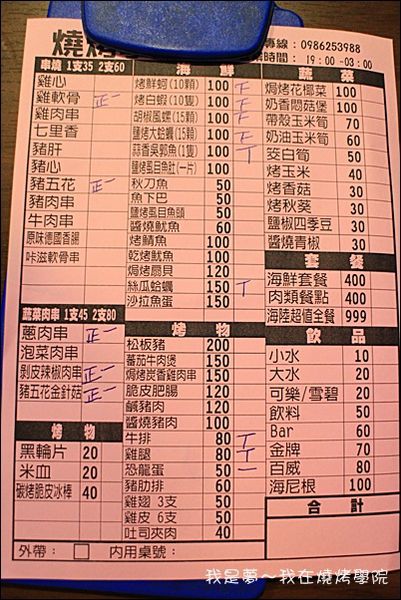 燒烤
專線：0986253988
時間：19：00 -03：00
串燒 1支35 2支60
雞心
雞軟骨 正一
雞肉串
七里香
豬肝
豬心
豬五花 正一
豬肉串
牛肉串
原味德國香腸
咔滋軟骨串
蔬菜肉串 1支45 2支80
蔥肉串 正一
泡菜肉串
剝皮辣椒肉串 正一
豬五花金針菇 正一
烤 物
黑輪片 20
米血 20
碳烤脆皮冰棒 40
外帶： 內用桌號：
海 鮮
烤鮮蚵(10顆) 100
烤白蝦(10隻) 100
胡椒風螺(15顆) 100
鹽烤大蛤蠣(15顆) 100
蒜香吳郭魚(1隻) 100
鹽烤虱目魚肚(一片) 100
秋刀魚 50
魚下巴 50
鹽烤虱目魚頭 50
醬燒魷魚 60
烤鯖魚 100
乾烤魷魚 100
焗烤扇貝 120
絲瓜蛤蠣 150
沙拉魚蛋 150
烤 物
松板豬 200
蕃茄牛肉煲 150
焗烤炭香雞肉串 150
脆皮肥腸 120
鹹豬肉 120
醬燒豬肉 100
牛排 80
雞腿 80
恐龍蛋 50 一
豬肋排 60
雞翅 3支 50
雞皮 6支 50
吐司夾肉 40
蔬 菜
焗烤花椰菜 100
奶香悶菇煲 100
帶殼玉米筍 70
奶油玉米筍 60
茭白筍 50
烤玉米 40
烤香菇 30
烤秋葵 30
鹽椒四季豆 30
醬燒青椒 30
套 餐
海鮮套餐 400
肉類餐點 400
海陸超值全餐 999
飲 品
小水 10
大水 20
可樂/雪碧 20
飲料 50
Bar 60
金牌 70
百威 80
海尼根 100
合 計
我是夢～我在燒烤學院